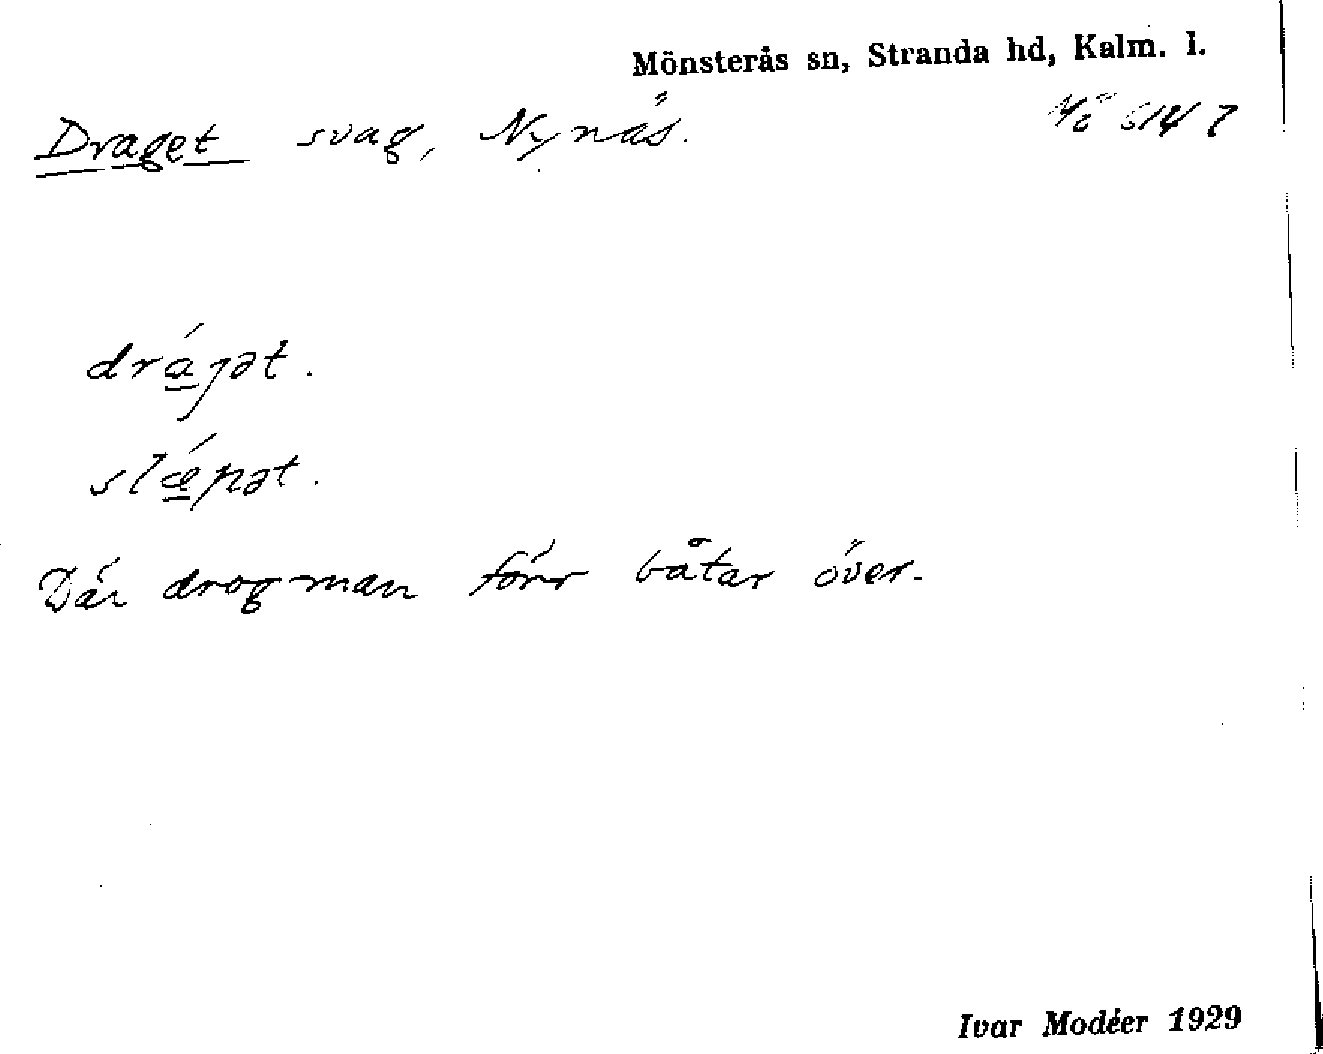 Mönsterås sn, Stranda hd, Kalm. l.
Draget svag, Nynäs.
drájət.
slǽpət.
Där drog man förr båtar över.
Ivar Modéer 1929